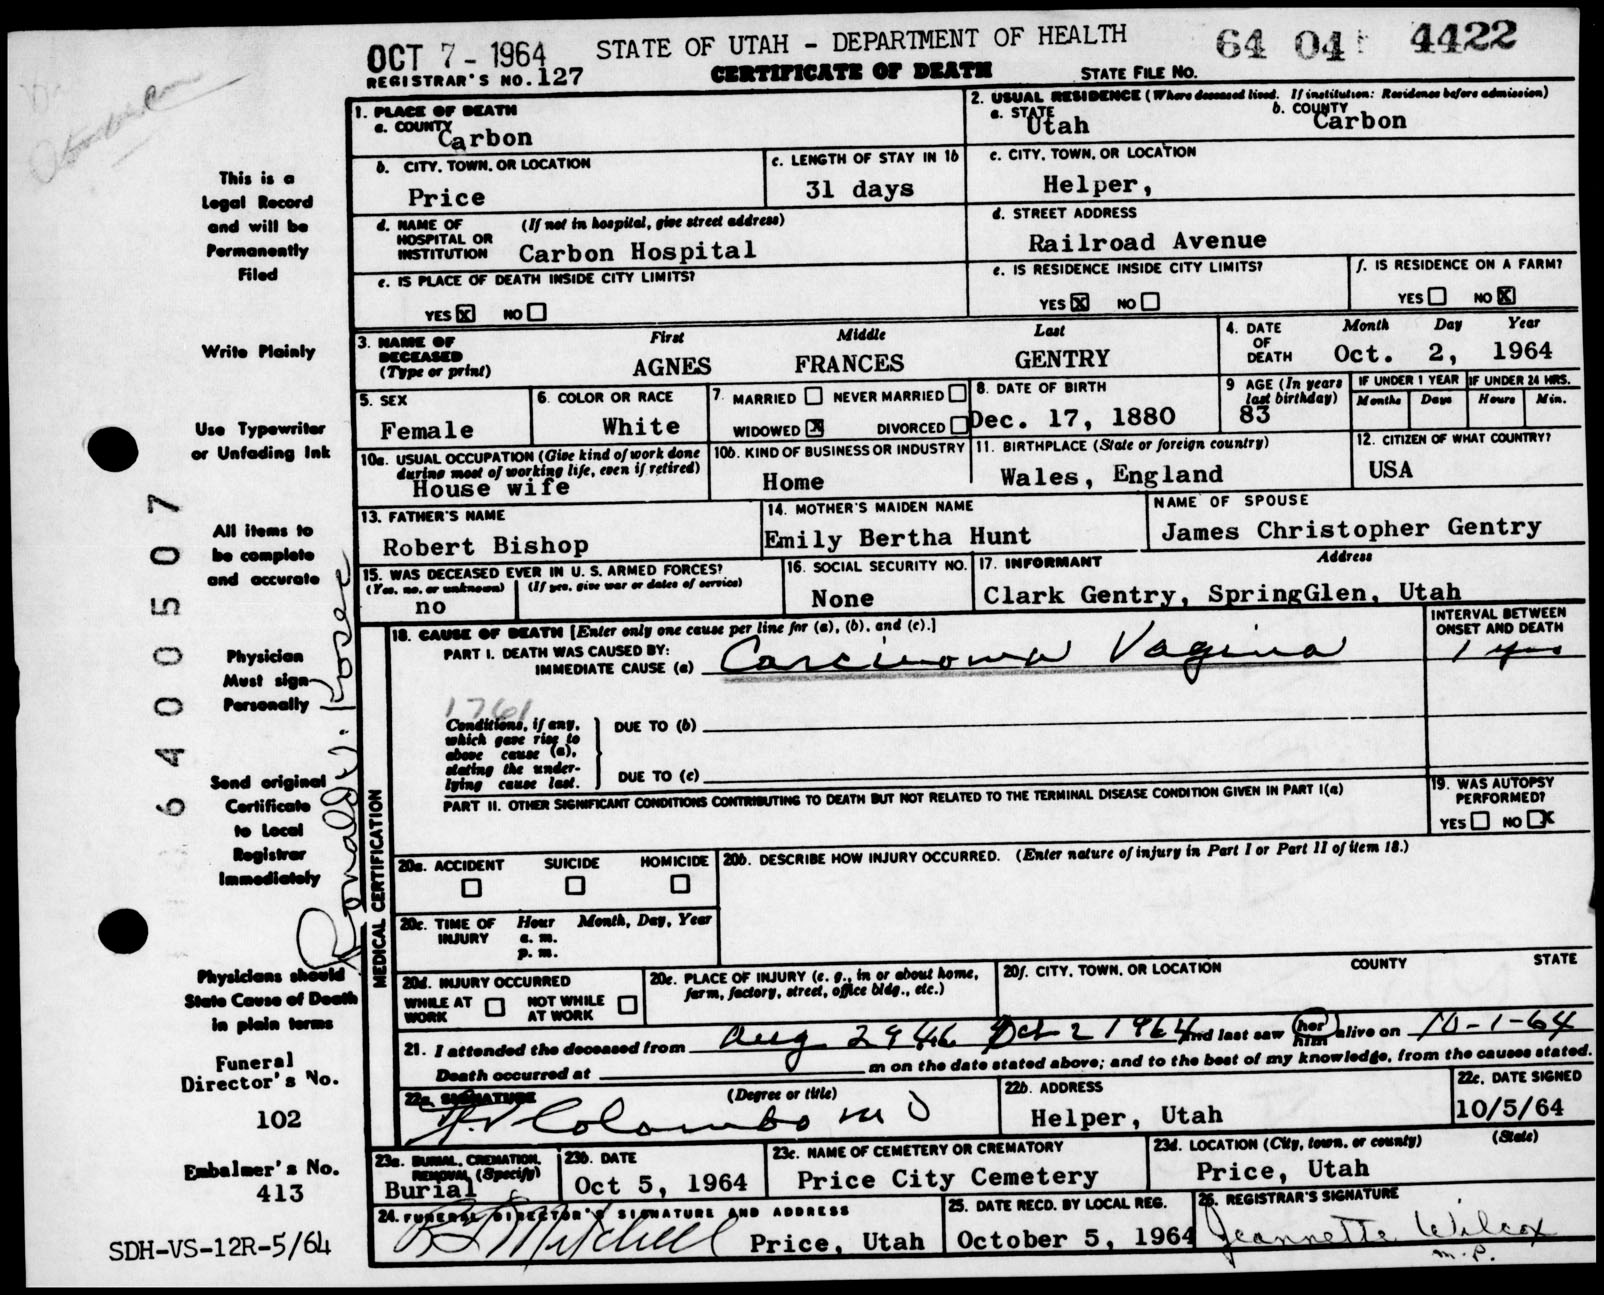 OCT 7 - 1964
STATE OF UTAH - DEPARTMENT OF HEALTH
64 04 4422
REGISTRAR'S NO. 127
CERTIFICATE OF DEATH
STATE FILE NO.
This is a
Legal Record
and will be
Permanently
Filed
Write Plainly
Use Typewriter
or Unfading Ink
All items to
be complete
and accurate
Physician
Must sign
Personally
Send original
Certificate
to Local
Registrar
Immediately
Physicians should
State Cause of Death
in plain terms
Funeral
Director's No.
102
Embalmer's No.
413
SDH-VS-12R-5/64
6400507
1. PLACE OF DEATH
a. COUNTY
Carbon
2. USUAL RESIDENCE (Where deceased lived. If institution: Residence before admission)
a. STATE
Utah
b. COUNTY
Carbon
b. CITY, TOWN, OR LOCATION
Price
c. LENGTH OF STAY IN 1b
31 days
c. CITY, TOWN, OR LOCATION
Helper,
d. NAME OF HOSPITAL OR INSTITUTION
(If not in hospital, give street address)
Carbon Hospital
d. STREET ADDRESS
Railroad Avenue
e. IS PLACE OF DEATH INSIDE CITY LIMITS?
YES X NO
e. IS RESIDENCE INSIDE CITY LIMITS?
YES X NO
f. IS RESIDENCE ON A FARM?
YES NO X
3. NAME OF DECEASED
(Type or print)
First Middle Last
AGNES FRANCES GENTRY
4. DATE OF DEATH
Month Day Year
Oct. 2, 1964
5. SEX
Female
6. COLOR OR RACE
White
7. MARRIED NEVER MARRIED
WIDOWED X DIVORCED
8. DATE OF BIRTH
Dec. 17, 1880
9 AGE (In years last birthday)
83
IF UNDER 1 YEAR
Months Days
IF UNDER 24 HRS.
Hours Min.
10a. USUAL OCCUPATION (Give kind of work done during most of working life, even if retired)
House wife
10b. KIND OF BUSINESS OR INDUSTRY
Home
11. BIRTHPLACE (State or foreign country)
Wales, England
12. CITIZEN OF WHAT COUNTRY?
USA
13. FATHER'S NAME
Robert Bishop
14. MOTHER'S MAIDEN NAME
Emily Bertha Hunt
NAME OF SPOUSE
James Christopher Gentry
15. WAS DECEASED EVER IN U. S. ARMED FORCES?
(Yes, no, or unknown) (If yes, give war or dates of service)
no
16. SOCIAL SECURITY NO.
None
17. INFORMANT Address
Clark Gentry, SpringGlen, Utah
MEDICAL CERTIFICATION
18. CAUSE OF DEATH [Enter only one cause per line for (a), (b), and (c).]
PART I. DEATH WAS CAUSED BY:
IMMEDIATE CAUSE (a) Carcinoma Vagina
INTERVAL BETWEEN ONSET AND DEATH
1 yr
1761
Conditions, if any, which gave rise to above cause (a), stating the underlying cause last.
DUE TO (b)
DUE TO (c)
PART II. OTHER SIGNIFICANT CONDITIONS CONTRIBUTING TO DEATH BUT NOT RELATED TO THE TERMINAL DISEASE CONDITION GIVEN IN PART I(a)
19. WAS AUTOPSY PERFORMED?
YES NO X
20a. ACCIDENT SUICIDE HOMICIDE
20b. DESCRIBE HOW INJURY OCCURRED. (Enter nature of injury in Part I or Part II of item 18.)
20c. TIME OF INJURY
Hour Month, Day, Year
a. m.
p. m.
20d. INJURY OCCURRED
WHILE AT WORK NOT WHILE AT WORK
20e. PLACE OF INJURY (e. g., in or about home, farm, factory, street, office bldg., etc.)
20f. CITY, TOWN, OR LOCATION COUNTY STATE
21. I attended the deceased from Aug 29 Oct 2 1964 and last saw her him alive on 10-1-64
Death occurred at m on the date stated above; and to the best of my knowledge, from the causes stated.
22a. SIGNATURE (Degree or title)
Colombo MD
22b. ADDRESS
Helper, Utah
22c. DATE SIGNED
10/5/64
23a. BURIAL, CREMATION, REMOVAL (Specify)
Burial
23b. DATE
Oct 5, 1964
23c. NAME OF CEMETERY OR CREMATORY
Price City Cemetery
23d. LOCATION (City, town, or county) (State)
Price, Utah
24. FUNERAL DIRECTOR'S SIGNATURE AND ADDRESS
Mitchell Price, Utah
25. DATE RECD. BY LOCAL REG.
October 5, 1964
26. REGISTRAR'S SIGNATURE
Jeannette Wilcox
m.p.